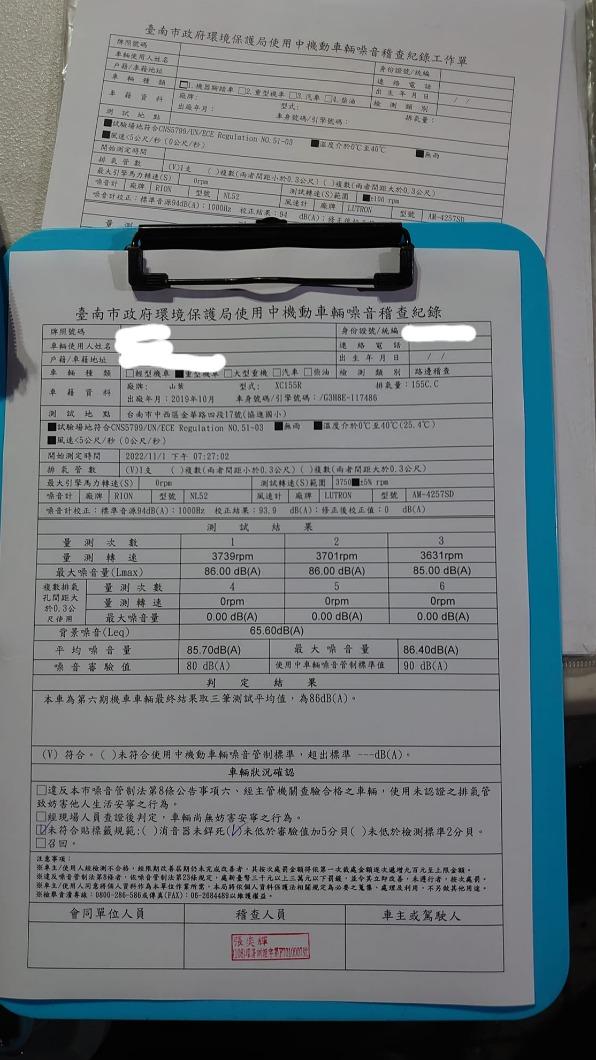 臺南市政府環境保護局使用中機動車輛噪音稽查紀錄工作單
牌照號碼
車輛使用人姓名 身份證號/統編
戶籍/車籍地址 連絡電話
車輛種類 □1.機器腳踏車 □2.重型機車 □3.汽車 □4.柴油 出生年月日 / /
車籍資料 廠牌: 型式: 檢測類別
出廠年月: 車身號碼/引擎號碼: 排氣量:
測試地點
■試驗場地符合CNS5799/UN/ECE Regulation NO.51-03 ■溫度介於0℃至40℃ ■無雨
■風速<5公尺/秒(0公尺/秒)
開始測定時間
排氣管數 (V)1支 ( )複數(兩者間距小於0.3公尺) ( )複數(兩者間距大於0.3公尺)
最大引擎馬力轉速(S) 0rpm 測試轉速(S)範圍 ■±100 rpm
噪音計 廠牌 RION 型號 NL52 風速計 廠牌 LUTRON 型號 AM-4257SD
噪音計校正:標準音源94dB(A):1000Hz 校正結果:94 dB(A):修正後
臺南市政府環境保護局使用中機動車輛噪音稽查紀錄
牌照號碼 身份證號/統編
車輛使用人姓名 連絡電話
戶籍/車籍地址 出生年月日 / /
車輛種類 □輕型機車 ■重型機車 □大型重機 □汽車 □柴油 檢測類別 路邊稽查
車籍資料 廠牌: 山葉 型式: XC155R 排氣量:155C.C
出廠年月:2019年10月 車身號碼/引擎號碼:/G3H8E-117486
測試地點 台南市中西區金華路四段17號(協進國小)
■試驗場地符合CNS5799/UN/ECE Regulation NO.51-03 ■無雨 ■溫度介於0℃至40℃(25.4℃)
■風速<5公尺/秒(0公尺/秒)
開始測定時間 2022/11/1 下午 07:27:02
排氣管數 (V)1支 ( )複數(兩者間距小於0.3公尺) ( )複數(兩者間距大於0.3公尺)
最大引擎馬力轉速(S) 0rpm 測試轉速(S)範圍 3750■±5% rpm
噪音計 廠牌 RION 型號 NL52 風速計 廠牌 LUTRON 型號 AM-4257SD
噪音計校正:標準音源94dB(A):1000Hz 校正結果:93.9 dB(A):修正後校正值:0 dB(A)
測試結果
量測次數 1 2 3
量測轉速 3739rpm 3701rpm 3631rpm
最大噪音量(Lmax) 86.00 dB(A) 86.00 dB(A) 85.00 dB(A)
複數排氣孔間距大於0.3公尺使用 量測次數 4 5 6
量測轉速 0rpm 0rpm 0rpm
最大噪音量 0.00 dB(A) 0.00 dB(A) 0.00 dB(A)
背景噪音(Leq) 65.60dB(A)
平均噪音量 85.70dB(A) 最大噪音量 86.40dB(A)
噪音審驗值 80 dB(A) 使用中車輛噪音管制標準值 90 dB(A)
判定結果
本車為第六期機車車輛最終結果取三筆測試平均值,為86dB(A)。
(V) 符合。( )未符合使用中機動車輛噪音管制標準,超出標準 ---dB(A)。
車輛狀況確認
□違反本市噪音管制法第8條公告事項六、經主管機關查驗合格之車輛,使用未認證之排氣管
致妨害他人生活安寧之行為。
□經現場人員查證後判定,車輛尚無妨害安寧之行為。
☑未符合貼標籤規範:( )消音器未銲死(✓)未低於審驗值加5分貝( )未低於檢測標準2分貝。
□召回。
注意事項:
※車主/使用人經檢測不合格,經限期改善屆期仍未完成改善者,其按次處罰金額得依第一次裁處金額逐次遞增九百元至上限金額。
※違反噪音管制法第8條者,依噪音管制法第23條規定,處新臺幣三千元以上三萬元以下罰鍰,並令其立即改善,未遵行者,按次處罰。
※車主/使用人同意將個人資料作為本單位作業所需,本局將依個人資料保護法相關規定為必要之蒐集、處理及利用,不另做其他用途。
※檢舉貪瀆專線:0800-286-586或傳真(FAX):06-2684489以維護權益。
會同單位人員 稽查人員 車主或駕駛人